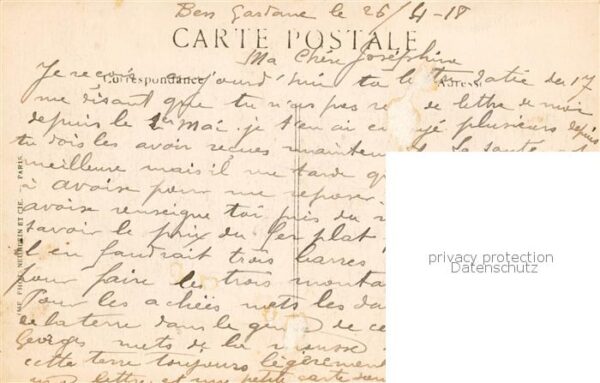 Ben Gardane le 26/4-18
CARTE POSTALE
Ma Chère Joséphine
Correspondance
Adresse
Je reçois aujourd'hui ta lettre datée du 17
me disant que tu n'as pas re de lettre de moi
depuis le 1er Mai. je t'en ai en yé plusieurs depuis
tu dois les avoir reçues mainten La santé
meilleure mais il me tarde
à avoise pour me reposer.
avoise renseigne toi près du
savoir le prix du fer plat
l en faudrait trois barres
pour faire les trois monta
Pour les achées mets les da
de la terre dans le de ce
Georges mets de la mousse
cette terre toujours légèrement
lettre et une petite carte dans
IMP. PHOT. NEURDEIN ET CIE. PARIS
privacy protection
Datenschutz